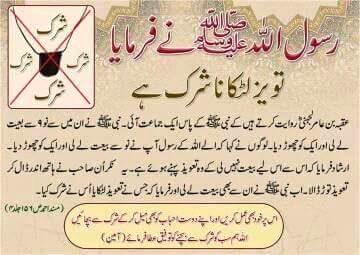 شرک
شرک
شرک
شرک
رسول اللہ ﷺ نے فرمایا
تویز لٹکانا شرک ہے
عقبہ بن عامر الجہنیؓ روایت کرتے ہیں کے نبی ﷺ کے پاس ایک جماعت آئی۔ نبی ﷺ نے ان میں سے نو ۹ سے بیعت
لے لی اور ایک کو چھوڑ دیا۔ لوگوں نے کہا کے اللہ کے رسول آپ نے نو سے بیعت لے لی اور ایک کو چھوڑ دیا۔
ارشاد فرمایا کہ اس سے اس لیے بیعت نہیں لی کے وہ تعویذ پہنے ہوئے ہے۔ یہ سنکر اُن صاحب نے ہاتھ اندر ڈال کر
تعویذ توڑ ڈالا۔ اب نبی ﷺ نے ان سے بھی بیعت لے لی اور فرمایا کہ جس نے تعویذ لٹکایا اُس نے شرک کیا۔
(مسند احمد ص ۱۵۶ جلد ۴)
اس پر خود بھی عمل کریں اور اپنے دوست احباب کو بھی میل کر کے شرک سے بچائیں
اللہ ہم سب کو شرک سے بچنے کی توفیق عطا فرمائے (آمین)